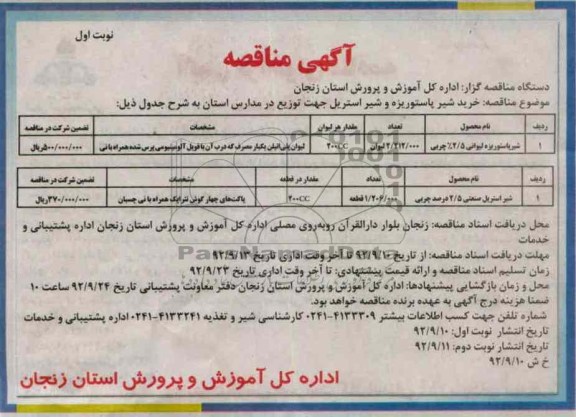 نوبت اول
آگهی مناقصه
دستگاه مناقصه گزار: اداره کل آموزش و پرورش استان زنجان
موضوع مناقصه: خرید شیر پاستوریزه و شیر استریل جهت توزیع در مدارس استان به شرح جدول ذیل:
ردیف نام محصول تعداد مقدار هر لیوان مشخصات تضمین شرکت در مناقصه
۱ شیر پاستوریزه لیوانی ۲/۵٪ چربی ۲/۲۱۲/۰۰۰ لیوان ۲۰۰CC لیوان پلی اتیلن یکبار مصرف که درب آن با فویل آلومینیومی پرس شده همراه با نی ۵۰۰/۰۰۰/۰۰۰ریال
ردیف نام محصول تعداد مقدار در قطعه مشخصات تضمین شرکت در مناقصه
۱ شیر استریل صنعتی ۲/۵ درصد چربی ۱/۲۰۶/۰۰۰ قطعه ۲۰۰CC پاکت‌های چهار گوش تتراپک همراه با نی چسبان ۳۷۰/۰۰۰/۰۰۰ریال
محل دریافت اسناد مناقصه: زنجان بلوار دارالقرآن روبه‌روی مصلی اداره کل آموزش و پرورش استان زنجان اداره پشتیبانی و
خدمات
مهلت دریافت اسناد مناقصه: از تاریخ ۹۲/۹/۱۰ تا آخر وقت اداری تاریخ ۹۲/۹/۱۳
زمان تسلیم اسناد مناقصه و ارائه قیمت پیشنهادی: تا آخر وقت اداری تاریخ ۹۲/۹/۲۳
محل و زمان بازگشایی پیشنهادها: اداره کل آموزش و پرورش استان زنجان دفتر معاونت پشتیبانی تاریخ ۹۲/۹/۲۴ ساعت ۱۰
ضمنا هزینه درج آگهی به عهده برنده مناقصه خواهد بود.
شماره تلفن جهت کسب اطلاعات بیشتر ۴۱۳۳۳۰۹-۰۲۴۱ کارشناسی شیر و تغذیه ۴۱۳۳۲۴۱-۰۲۴۱ اداره پشتیبانی و خدمات
تاریخ انتشار نوبت اول: ۹۲/۹/۱۰
تاریخ انتشار نوبت دوم: ۹۲/۹/۱۱
خ ش ۹۲/۹/۱۰
اداره کل آموزش و پرورش استان زنجان